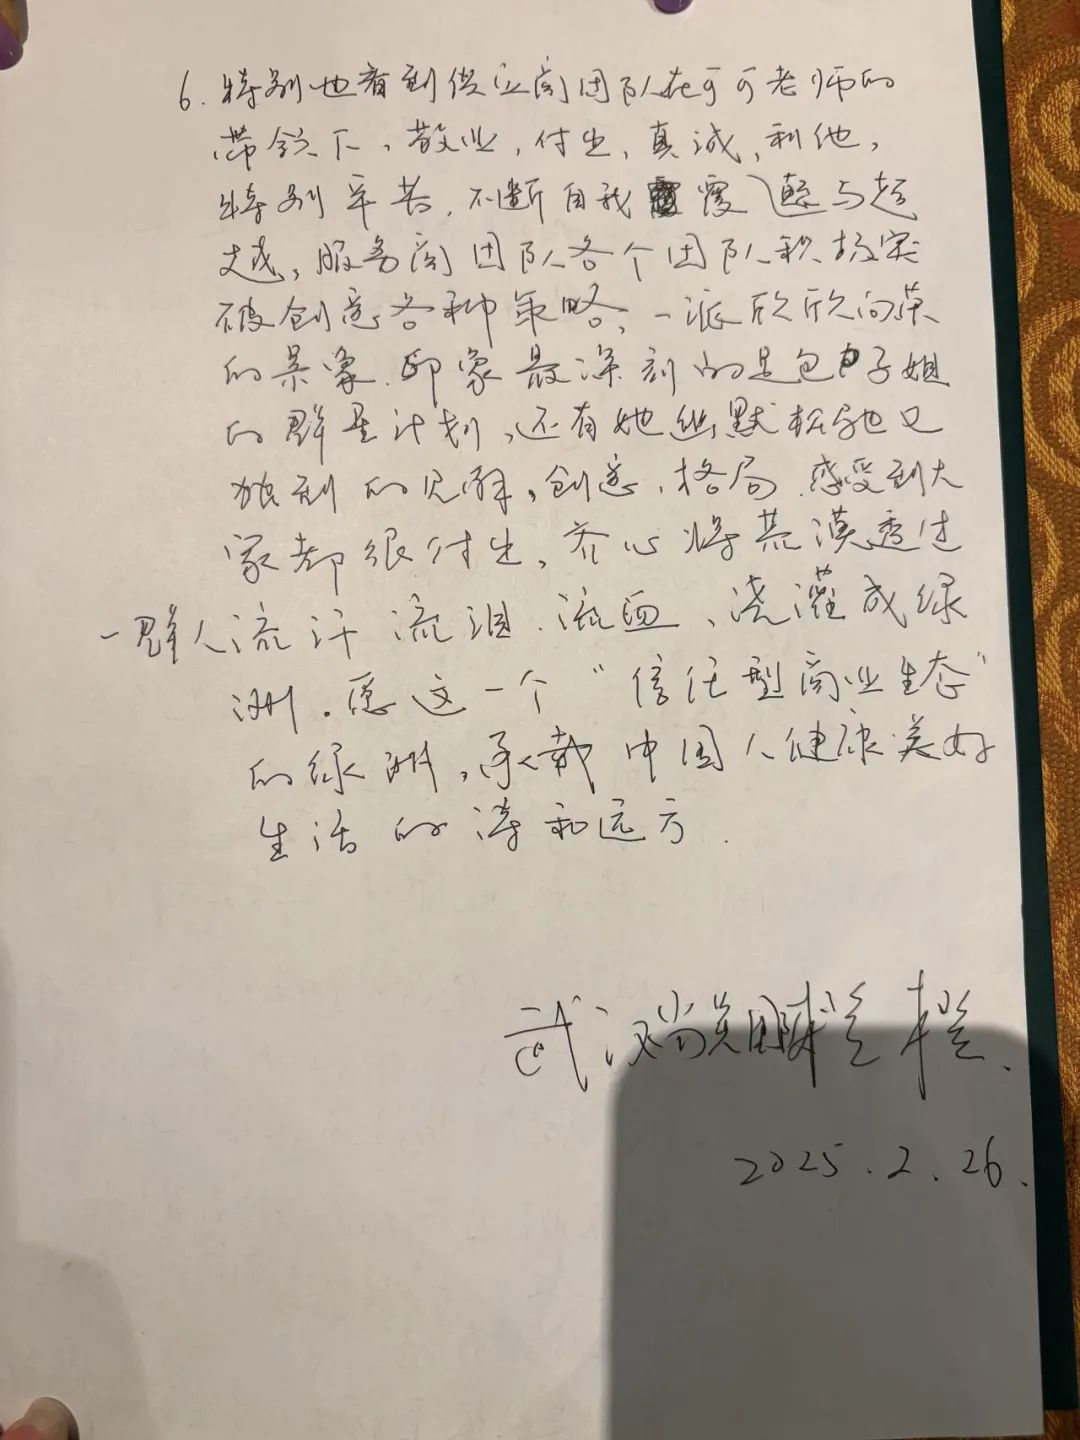 6.特别也看到供应商团队在可可老师的
带领下,敬业,付出,真诚,利他,
特别辛苦,不断自我覆与超
越,服务商团队各个团队积极突
破创意各种策略,一派欣欣向荣
的景象.印象最深刻的是包子姐
的群星计划,还有她幽默松弛又
独到的见解,创意,格局.感受到大
家都很付出,齐心将荒漠透过
一群人流汗流泪.流血,浇灌成绿
洲.愿这一个"信任型商业生态"
的绿洲,承载中国人健康美好
生活的诗和远方.
武汉
2025.2.26.